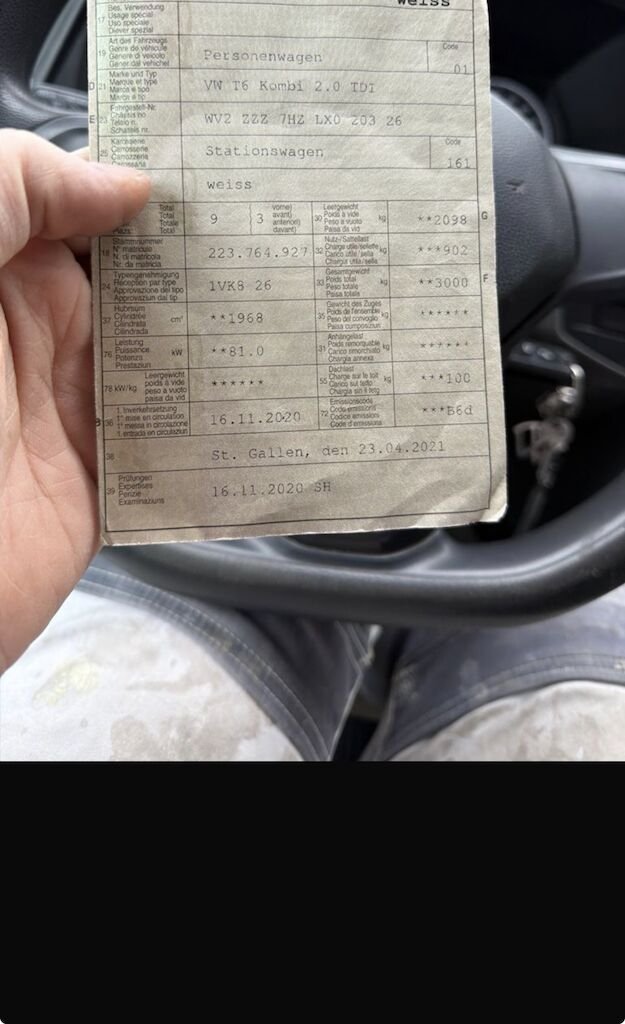 weiss
17 Bes. Verwendung
Usage spécial
Uso speciale
Diever spezial
19 Art des Fahrzeugs
Genre de véhicule
Genere di veicolo
Gener dal vehichel
Personenwagen
Code
01
D 21 Marke und Typ
Marque et type
Marca e tipo
Marca e tip
VW T6 Kombi 2.0 TDI
E 23 Fahrgestell-Nr.
Châssis no
Telaio n.
Schassis nr.
WV2 ZZZ 7HZ LX0 203 26
25 Karosserie
Carrosserie
Carrozzeria
Carossaria
Stationswagen
Code
161
weiss
Total
Total
Totale
Plazs: Total
9 (3 vorne)
avant)
anteriori)
davant)
30 Leergewicht
Poids à vide
Peso a vuoto
Paisa da vid
kg
**2098 G
18 Stammnummer
N° matricule
N. di matricola
Nr. da matricla
223.764.927
32 Nutz-/Sattellast
Charge utile/sellette
Carico utile/sella
Chargia utila/sella
kg
***902
24 Typengenehmigung
Réception par type
Approvazione del tipo
Approvaziun dal tip
1VK8 26
33 Gesamtgewicht
Poids total
Peso totale
Paisa totala
kg
**3000 F
37 Hubraum
Cylindrée
Cilindrata
Cilindrada
cm³
**1968
35 Gewicht des Zuges
Poids de l'ensemble
Peso del convoglio
Paisa cumposiziun
kg
******
76 Leistung
Puissance
Potenza
Prestaziun
kW
**81.0
31 Anhängelast
Poids remorquable
Carico rimorchiato
Chargia annexa
kg
******
78 kW/kg Leergewicht
poids à vide
peso a vuoto
paisa da vid
******
55 Dachlast
Charge sur le toit
Carico sul tetto
Chargia sin il tetg
kg
***100
B 36 1. Inverkehrsetzung
1re mise en circulation
1a messa in circolazione
1. entrada en circulaziun
16.11.2020
72 Emissionscode
Code émissions
Codice emissioni
Code d'emissiuns
***B6d
38 St. Gallen, den 23.04.2021
39 Prüfungen
Expertises
Perizie
Examinaziuns
16.11.2020 SH